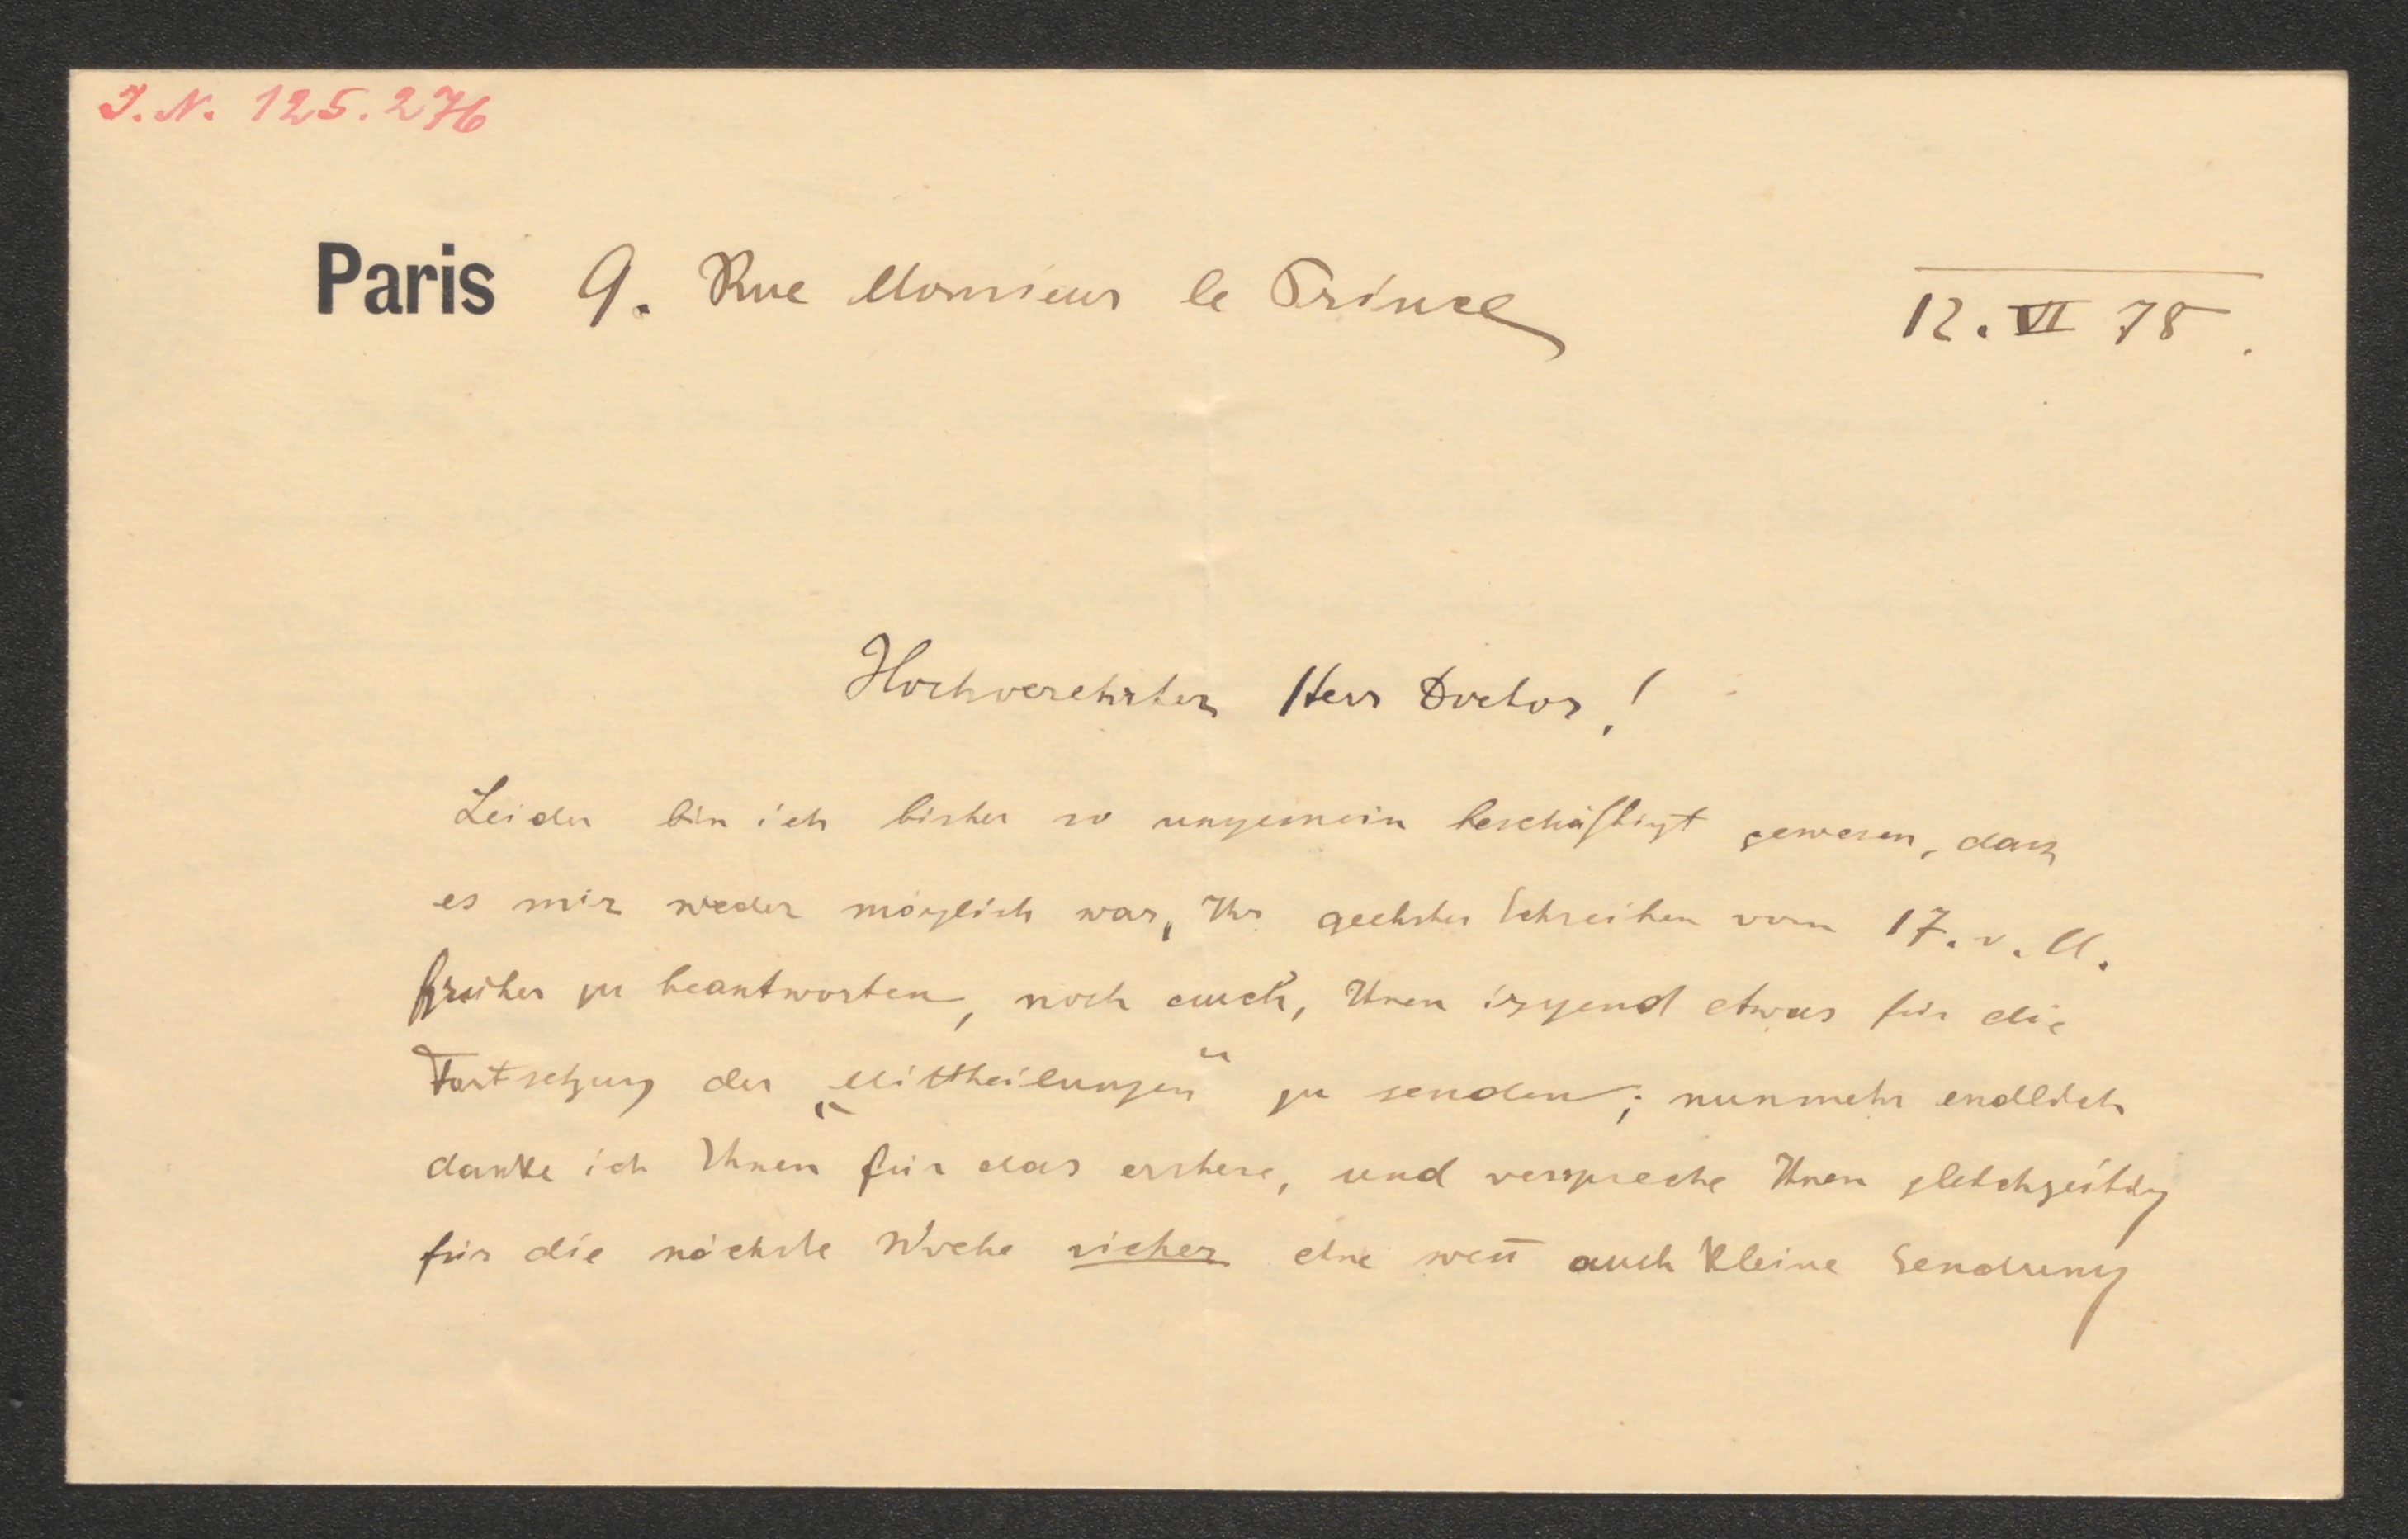 J. N. 125.276
Paris 9. Rue Monsieur le Prince
12. VI 78.
Hochverehrter Herr Doctor!
Leider bin ich bisher so ungemein beschäftigt gewesen, dass
es mir weder möglich war, Ihr geehrtes Schreiben vom 17. v. M.
früher zu beantworten, noch auch, Ihnen irgend etwas für die
Fortsetzung der „Mittheilungen“ zu senden; nunmehr endlich
danke ich Ihnen für das erstere, und verspreche Ihnen gleichzeitig
für die nächste Woche sicher eine weñ auch kleine Sendung